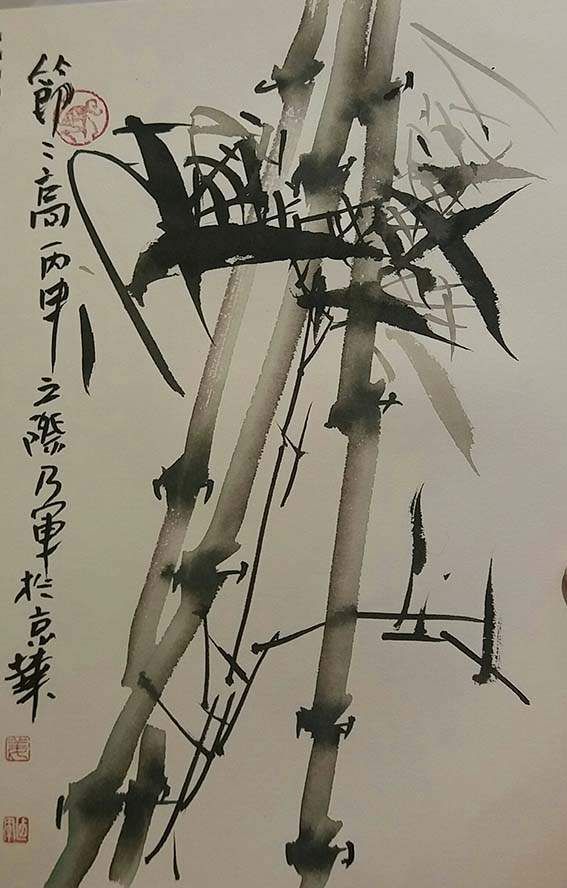 節〻高丙申之際乃軍於京華